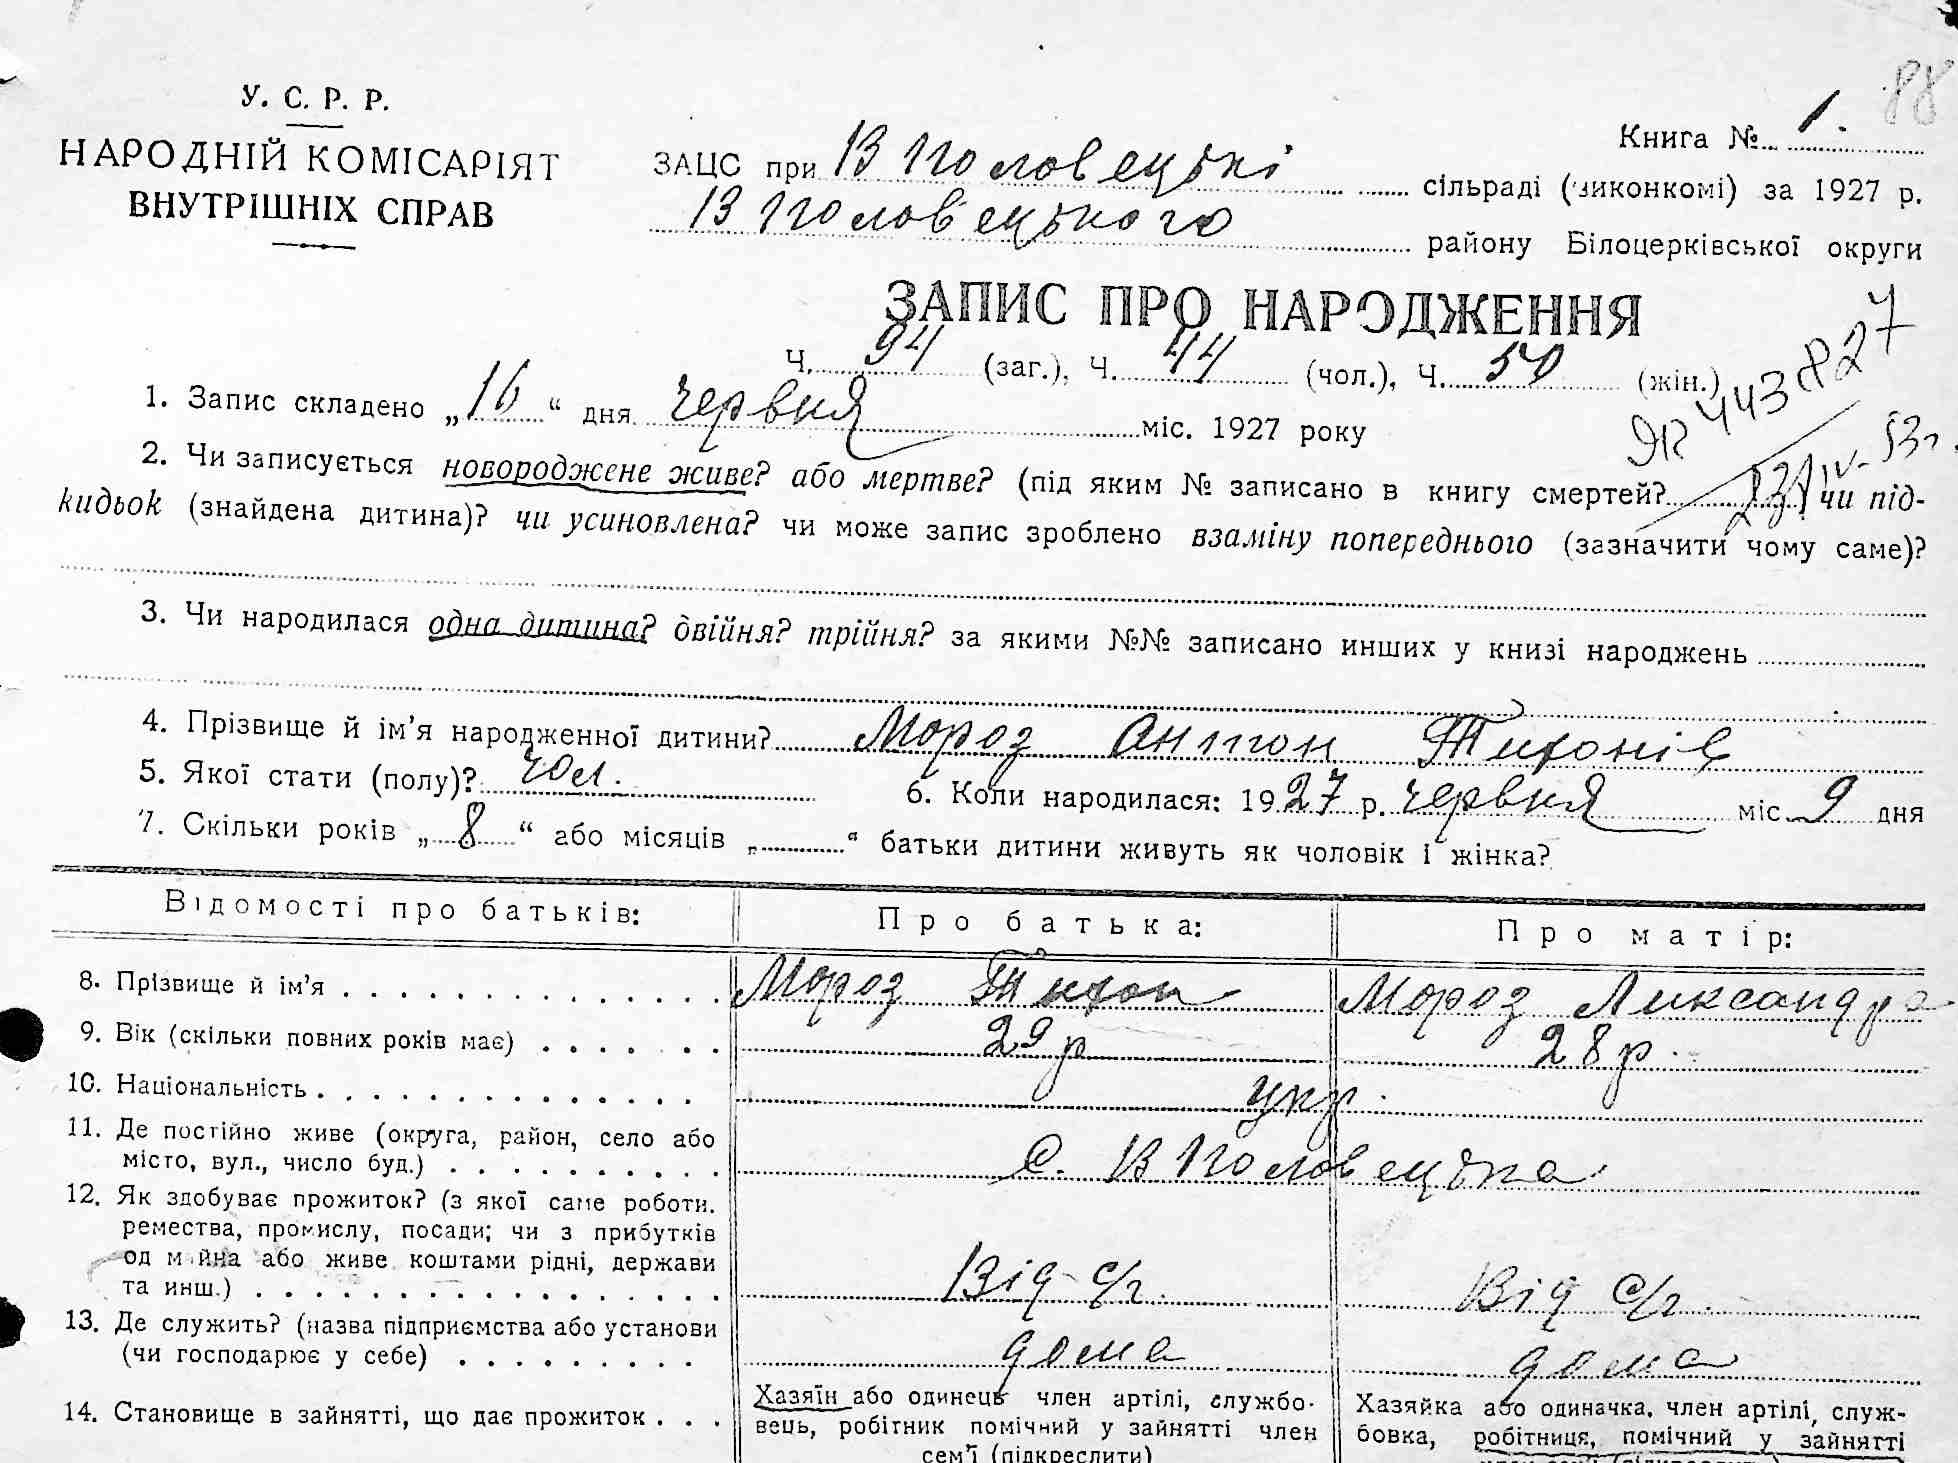 88
У. С. Р. Р.
НАРОДНІЙ КОМІСАРІЯТ
ВНУТРІШНІХ СПРАВ
Книга № 1.
ЗАЦС при В Половецькі сільраді (виконкомі) за 1927 р.
В Половецького району Білоцерківської округи
ЗАПИС ПРО НАРОДЖЕННЯ
Ч. 94 (заг.), Ч. 44 (чол.), Ч. 50 (жін.)
443827
1. Запис складено „16“ дня червня міс. 1927 року
2. Чи записується новороджене живе? або мертве? (під яким № записано в книгу смертей? чи під-
кидьок (знайдена дитина)? чи усиновлена? чи може запис зроблено взаміну попереднього (зазначити чому саме)?
3. Чи народилася одна дитина? двійня? трійня? за якими №№ записано инших у книзі народжень
4. Прізвище й ім’я народженної дитини? Мороз Антон Тихонів
5. Якої стати (полу)? чол. 6. Коли народилася: 1927 р. червня міс. 9 дня
7. Скільки років „8“ або місяців „ “ батьки дитини живуть як чоловік і жінка?
Відомості про батьків: Про батька: Про матір:
8. Прізвище й ім’я Мороз Тихон Мороз Лександра
9. Вік (скільки повних років має) 29 р 28 р.
10. Національність укр.
11. Де постійно живе (округа, район, село або
місто, вул., число буд.) с. В Половецька
12. Як здобуває прожиток? (з якої саме роботи,
ремества, промислу, посади; чи з прибутків
од майна або живе коштами рідні, держави
та инш.) Від с/г. Від с/г.
13. Де служить? (назва підприємства або установи
(чи господарює у себе) дома дома
14. Становище в зайнятті, що дає прожиток
Хазяїн або одинець член артілі, службо-
вець, робітник помічний у зайнятті член
сем’ї (підкреслити)
Хазяйка або одиначка, член артілі, служ-
бовка, робітниця, помічний у зайнятті